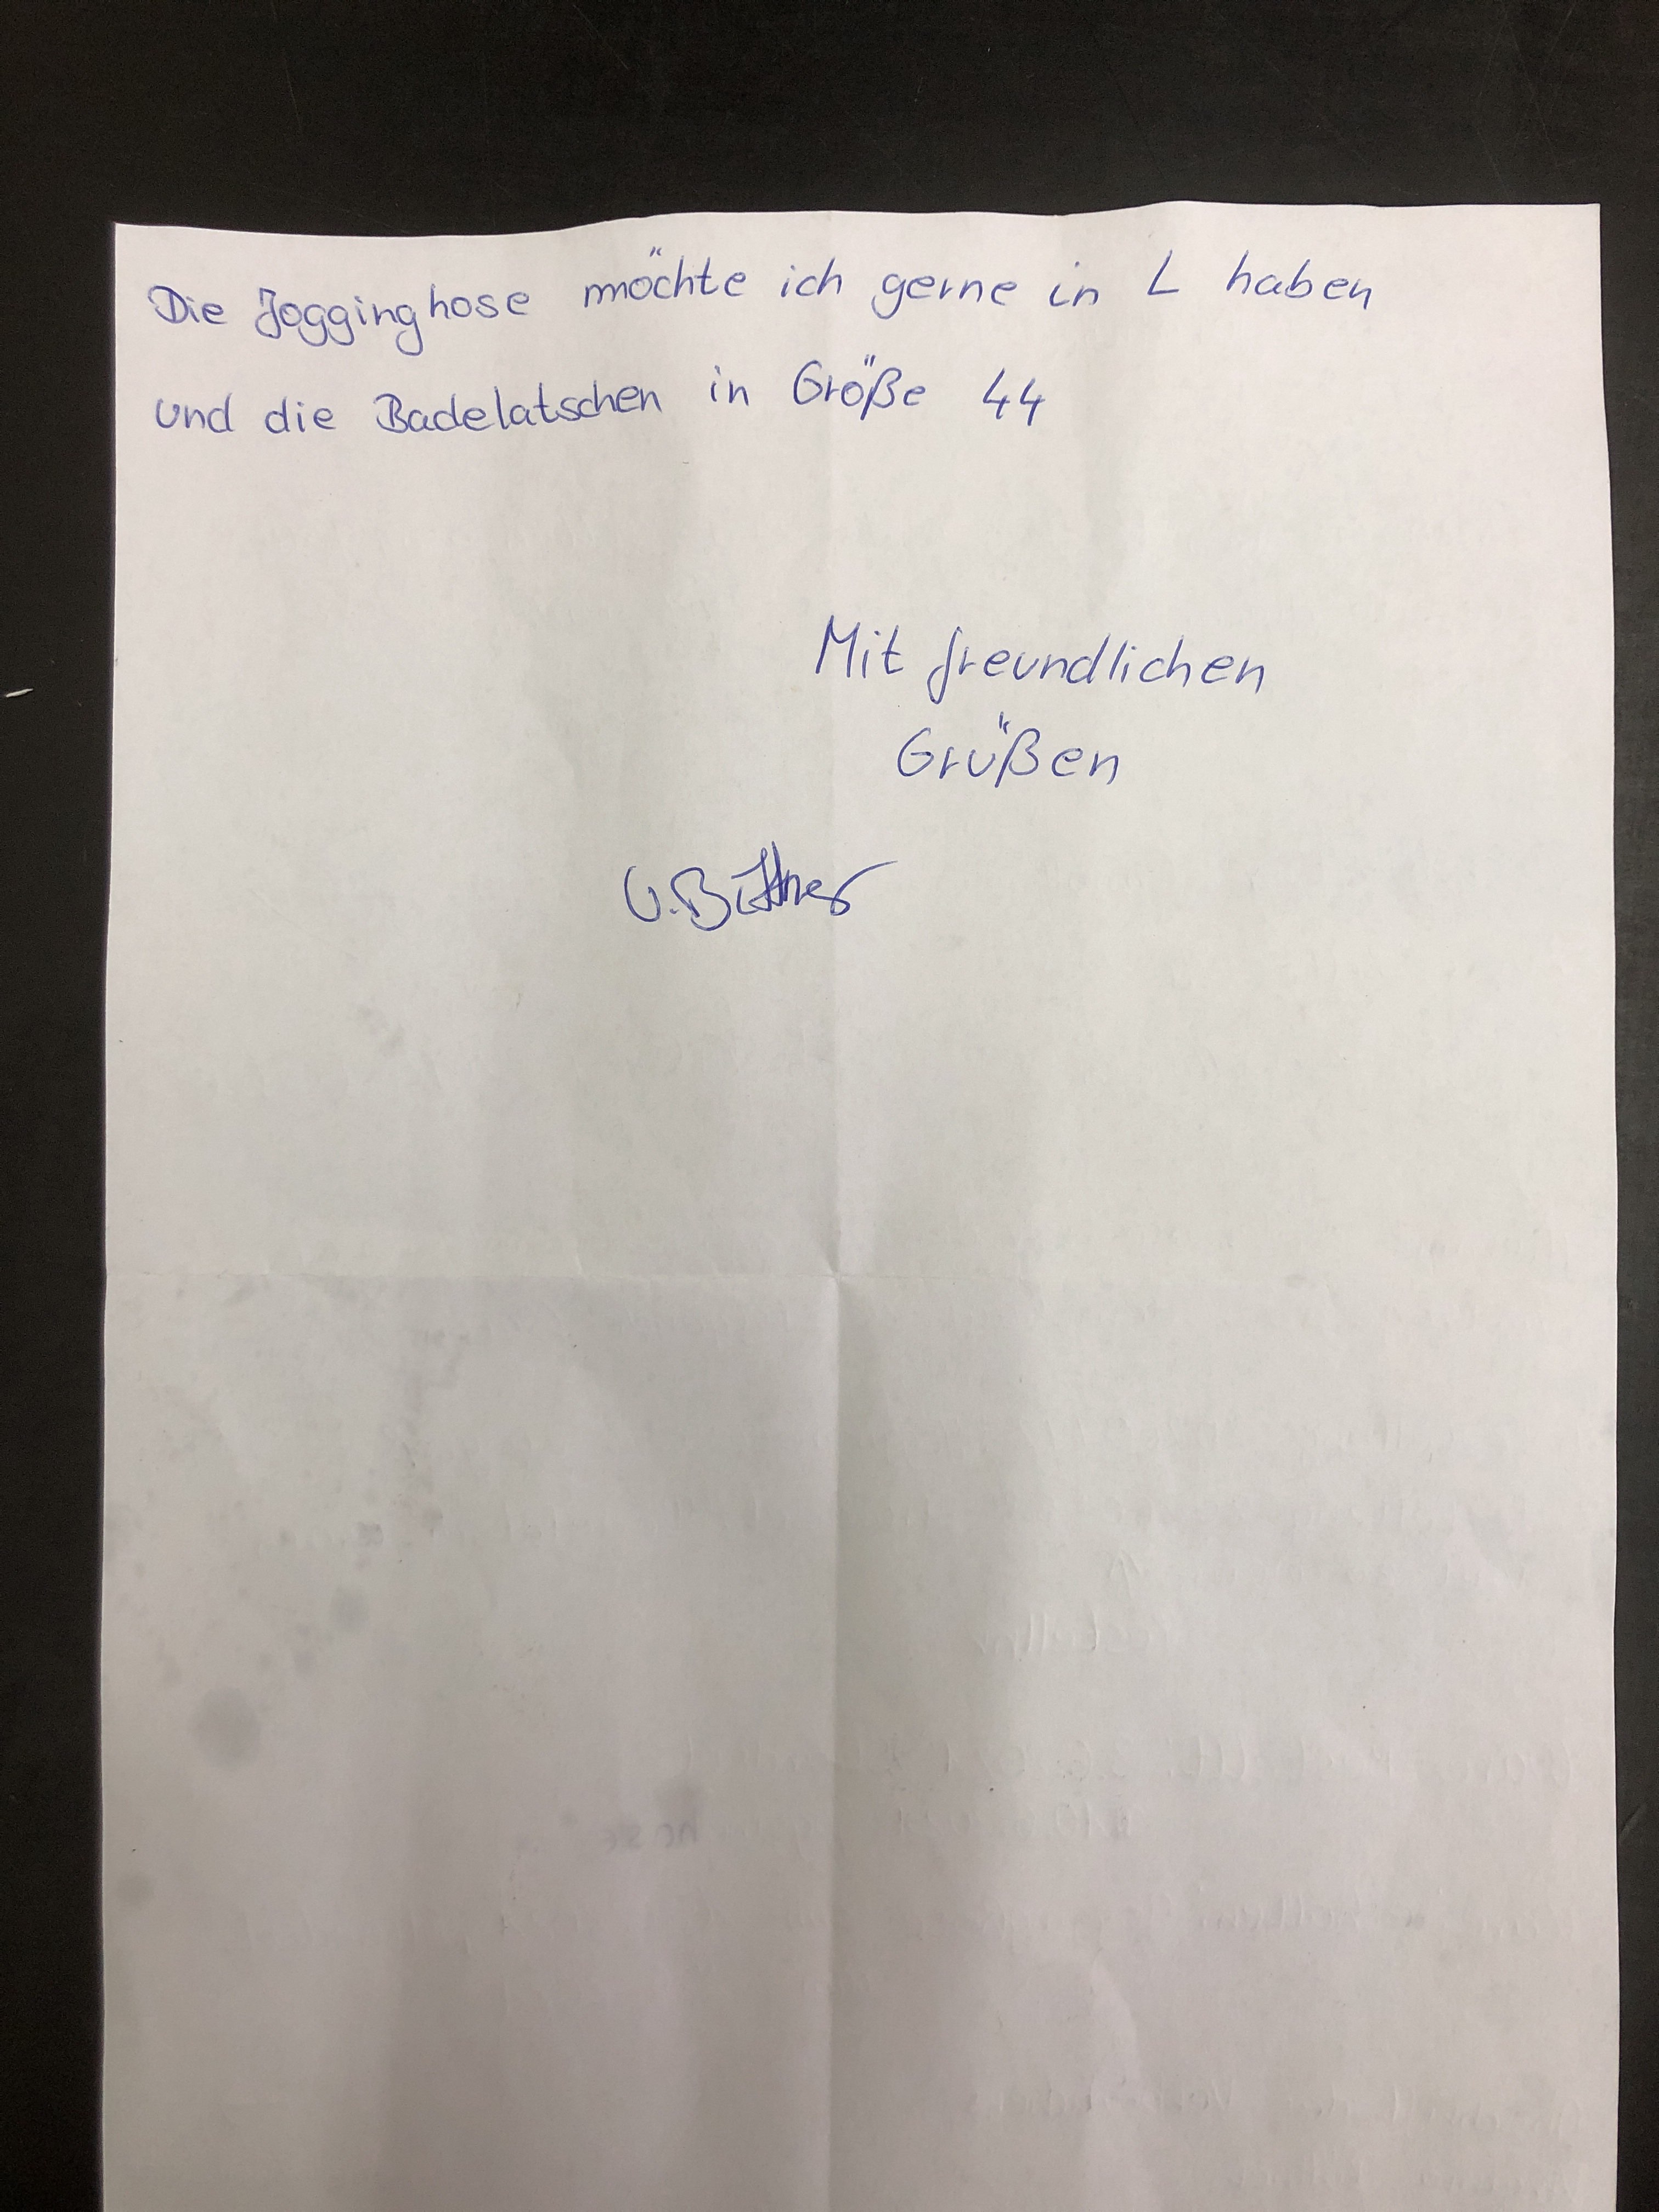 Die Jogginghose möchte ich gerne in L haben
und die Badelatschen in Größe 44
Mit freundlichen
Grüßen